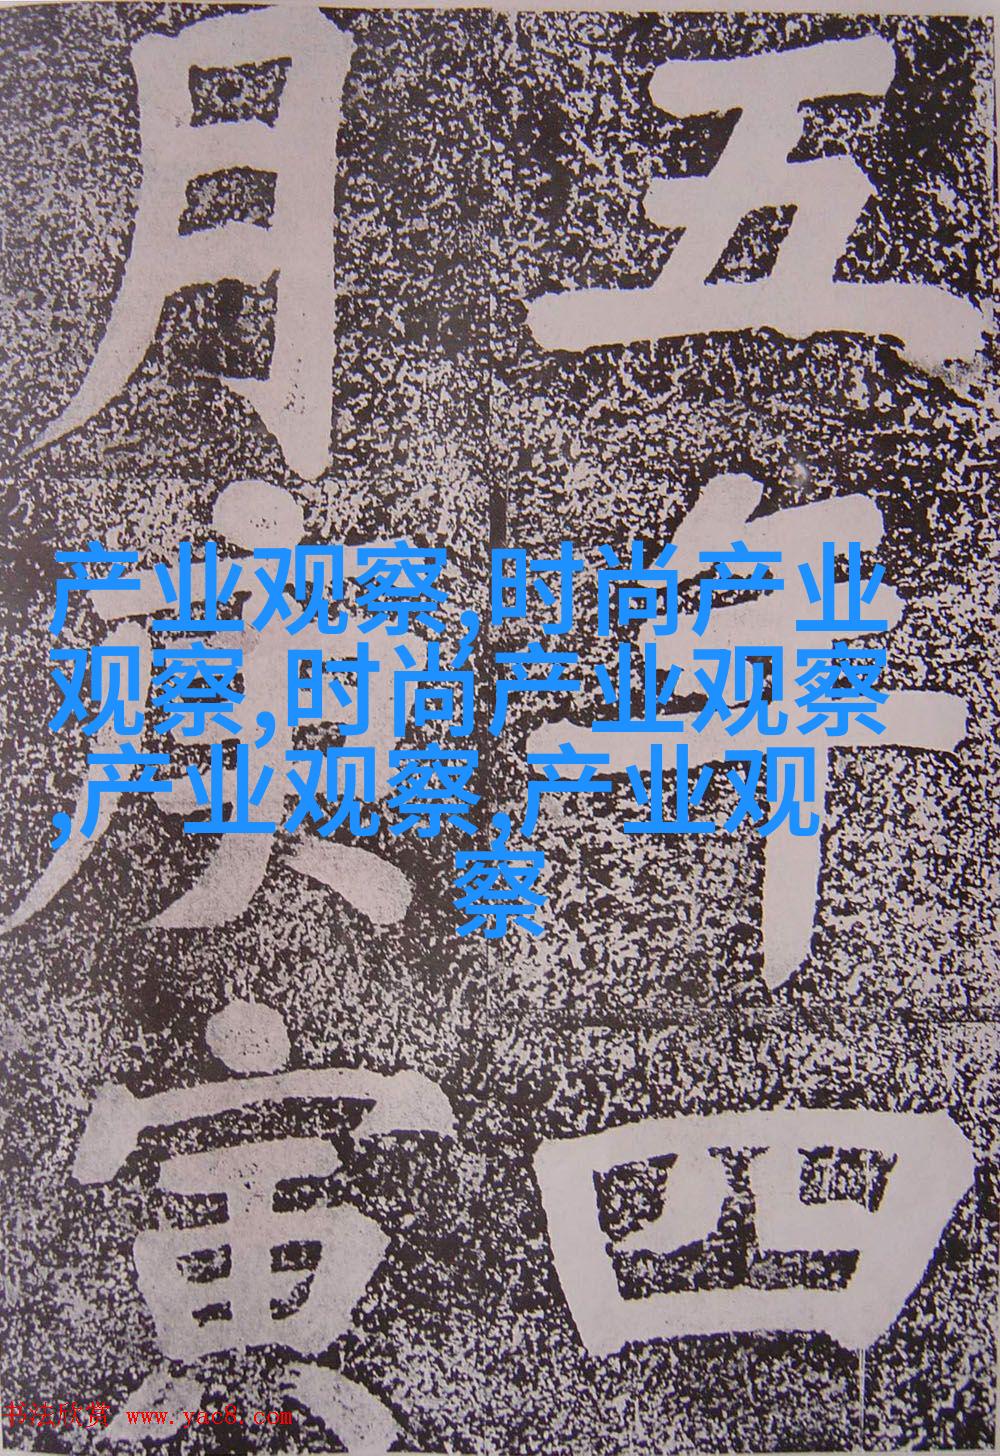 五年四
月庚寅
产业观察,时尚产业
观察,时尚产业观察
,产业观察,产业观
察
书法欣赏 www.yac8.com